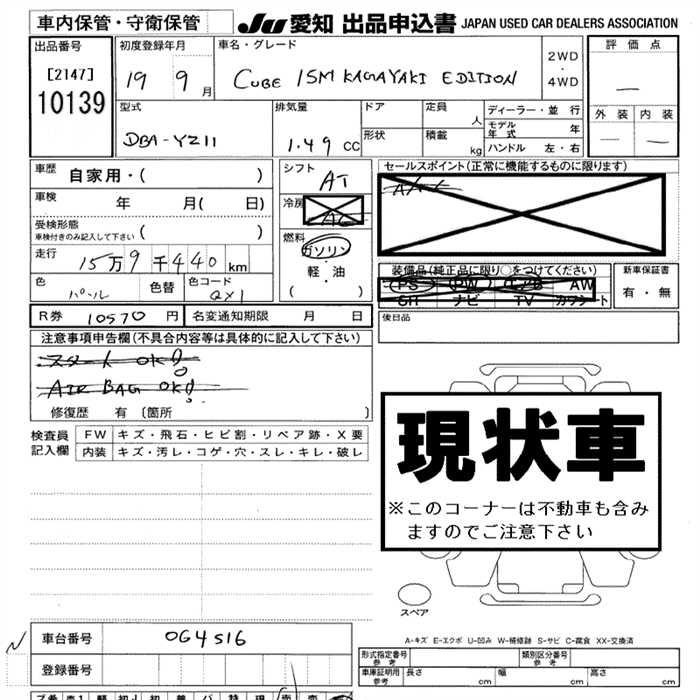 車内保管・守衛保管 JU 愛知 出品申込書 JAPAN USED CAR DEALERS ASSOCIATION
出品番号 初度登録年月 車名・グレード 2WD・4WD 評価点
[2147] 19 9月 CUBE 15M KAGAYAKI EDITION
10139
型式 排気量 ドア 定員 人 ディーラー・並行
外装 内装
モデル年式 年
DBA-YZ11 1.49 CC 形状 積載 kg ハンドル 左・右
車歴 自家用・( ) シフト AT セールスポイント(正常に機能するものに限ります)
車検 年 月( 日) 冷房 AC
受検形態 ( )
車検付きのみ記入して下さい
燃料 ガソリン・軽・油 ( )
走行 15万9千440km
装備品(純正品に限り○をつけてください) 新車保証書
PS PW AW 有・無
SR ナビ TV カワシート
色 パール 色替 色コード QX1
R券 10570円 名変通知期限 月 日 後日品
注意事項申告欄(不具合内容等は具体的に記入して下さい)
スタート OK!
AIR BAG OK!
修復歴 有 〔箇所 〕
検査員記入欄 FW キズ・飛石・ヒビ割・リペア跡・X要
内装 キズ・汚レ・コゲ・穴・スレ・キレ・破レ
現状車
※このコーナーは不動車も含み
ますのでご注意下さい
スペア
A-キズ E-エクボ U-凹み W-補修跡 S-サビ C-腐食 XX-交換済
車台番号 064516
登録番号
形式指定番号 参考 類別区分番号 参考
車庫証明用 参考 長さ cm 幅 cm 高さ cm